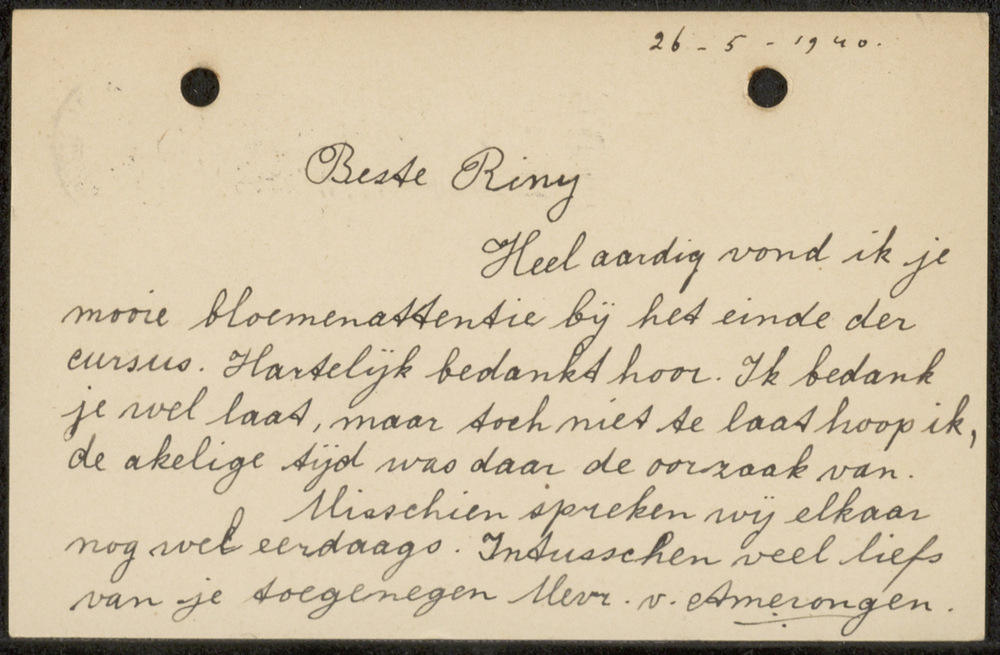 26-5-1940.
Beste Riny
Heel aardig vond ik je
mooie bloemenattentie bij het einde der
cursus. Hartelijk bedankt hoor. Ik bedank
je wel laat, maar toch niet te laat hoop ik,
de akelige tijd was daar de oorzaak van.
Misschien spreken wij elkaar
nog wel eerdaags. Intusschen veel liefs
van je toegenegen Mevr. v. Amerongen.